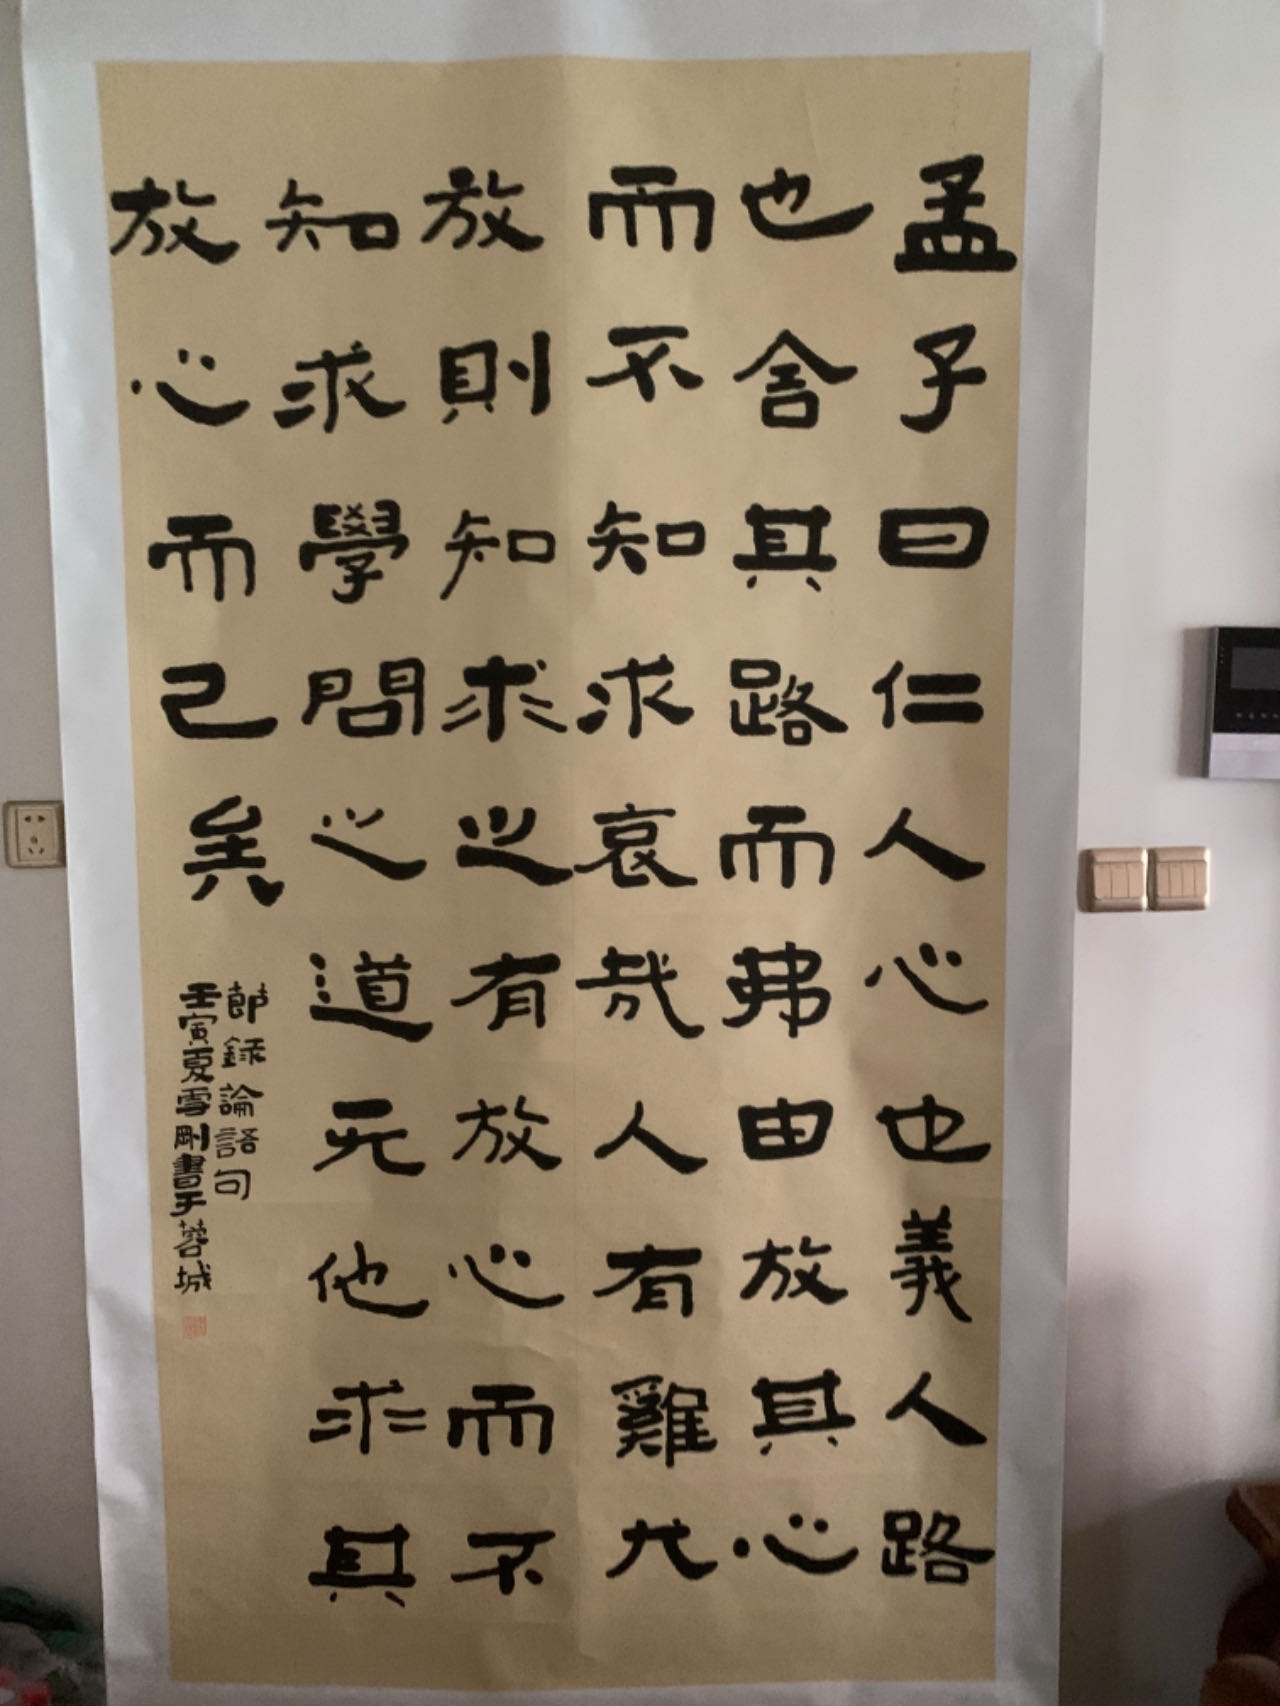 孟子曰仁人心也義人路
也舍其路而弗由放其心
而不知求哀哉人有雞犬
放則知求之有放心而不
知求學問之道无他求其
放心而已矣
節録論語句
壬寅夏雪剛書于蓉城